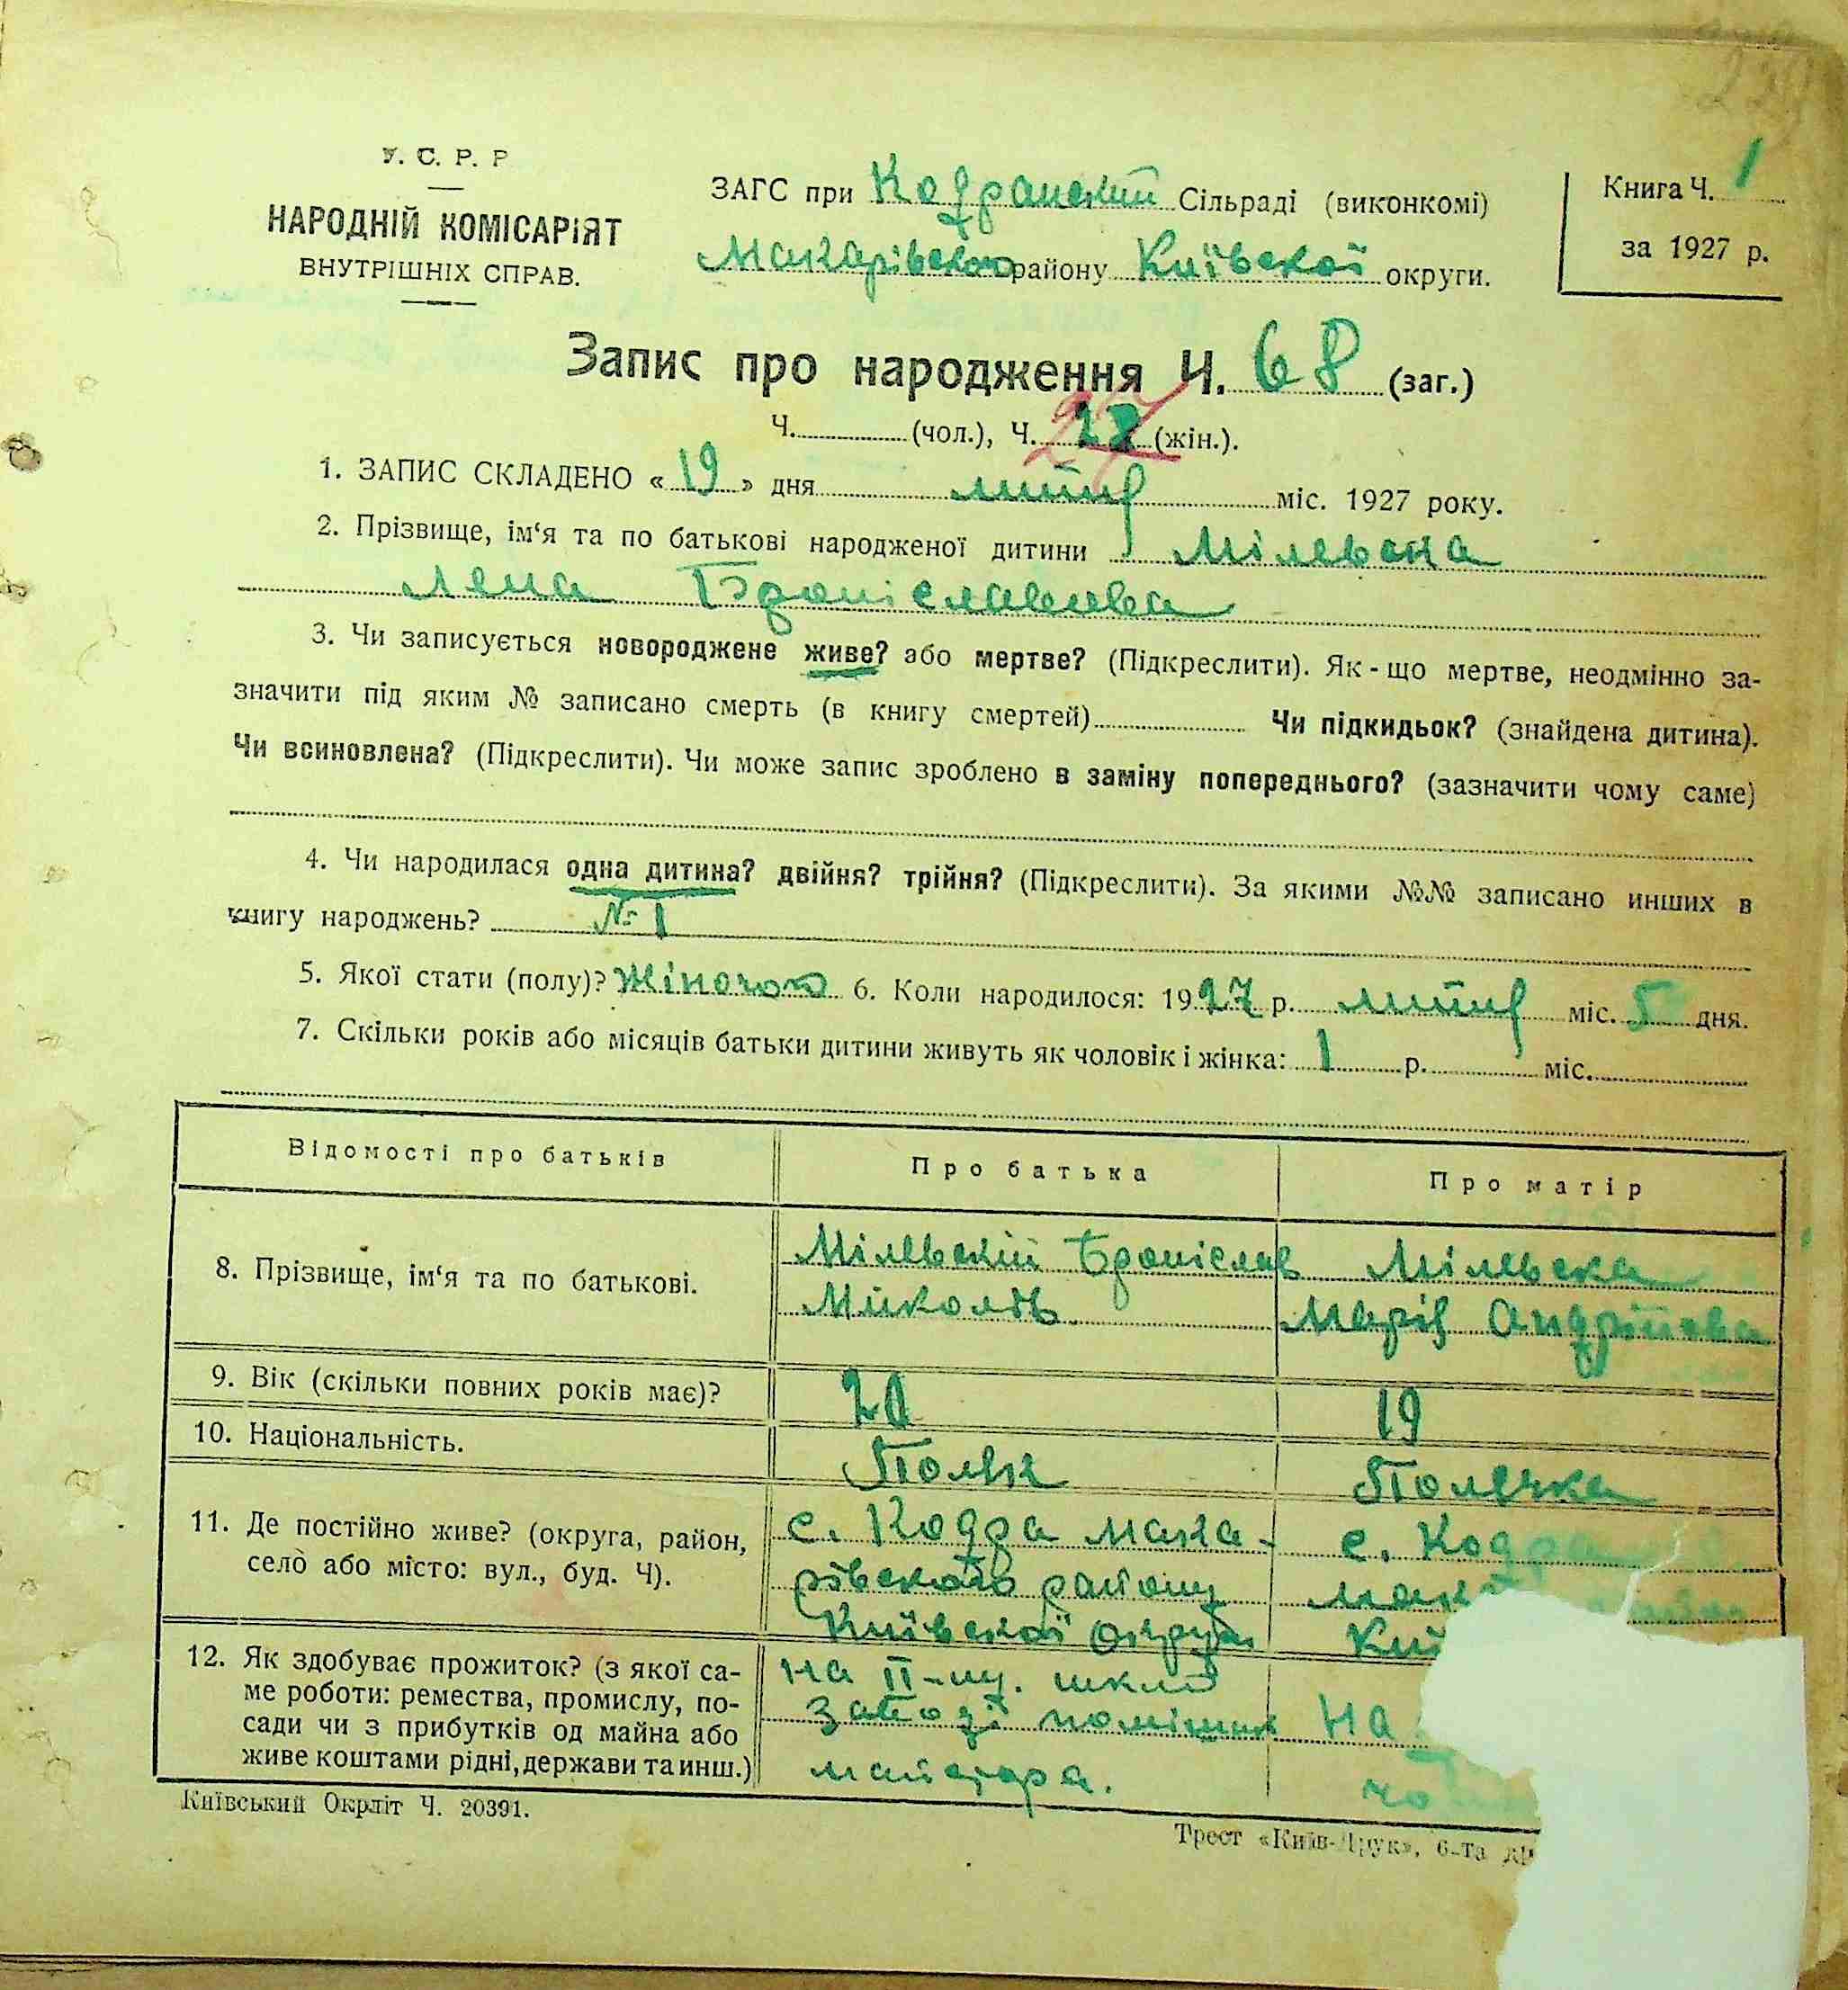 У. С. Р. Р
НАРОДНІЙ КОМІСАРІЯТ
ВНУТРІШНІХ СПРАВ.
ЗАГС при Кодранскій Сільраді (виконкомі)
Макарівского району Київскої округи.
Книга Ч. 1
за 1927 р.
Запис про народження Ч. 68 (заг.)
Ч. (чол.), Ч. 27 (жін.).
1. ЗАПИС СКЛАДЕНО «19» дня липня міс. 1927 року.
2. Прізвище, ім‘я та по батькові народженої дитини Мілевска
Лена Броніславовна
3. Чи записується новороджене живе? або мертве? (Підкреслити). Як-що мертве, неодмінно за-
значити під яким № записано смерть (в книгу смертей) Чи підкидьок? (знайдена дитина).
Чи всиновлена? (Підкреслити). Чи може запис зроблено в заміну попереднього? (зазначити чому саме)
4. Чи народилася одна дитина? двійня? трійня? (Підкреслити). За якими №№ записано инших в
книгу народжень? № 1
5. Якої стати (полу)? Жіночого 6. Коли народилося: 1927 р. липня міс. 5 дня.
7. Скільки років або місяців батьки дитини живуть як чоловік і жінка: 1 р. міс.
Відомості про батьків Про батька Про матір
8. Прізвище, ім‘я та по батькові.
Мілевскій Броніслав
Миколів
Мілевска
Марія Андріївна
9. Вік (скільки повних років має)? 20 19
10. Національність. Поляк Полячка
11. Де постійно живе? (округа, район,
село або місто: вул., буд. Ч).
с. Кодра Мака-
рівского району
Київскої округи
с. Кодра
Мак
Киї
12. Як здобуває прожиток? (з якої са-
ме роботи: ремества, промислу, по-
сади чи з прибутків од майна або
живе коштами рідні, держави та инш.)
на II-му. шкля
заводі помішник
майстра.
На
чо
Київський Окрліт Ч. 20391.
Трест «Київ-Друк», 6-та